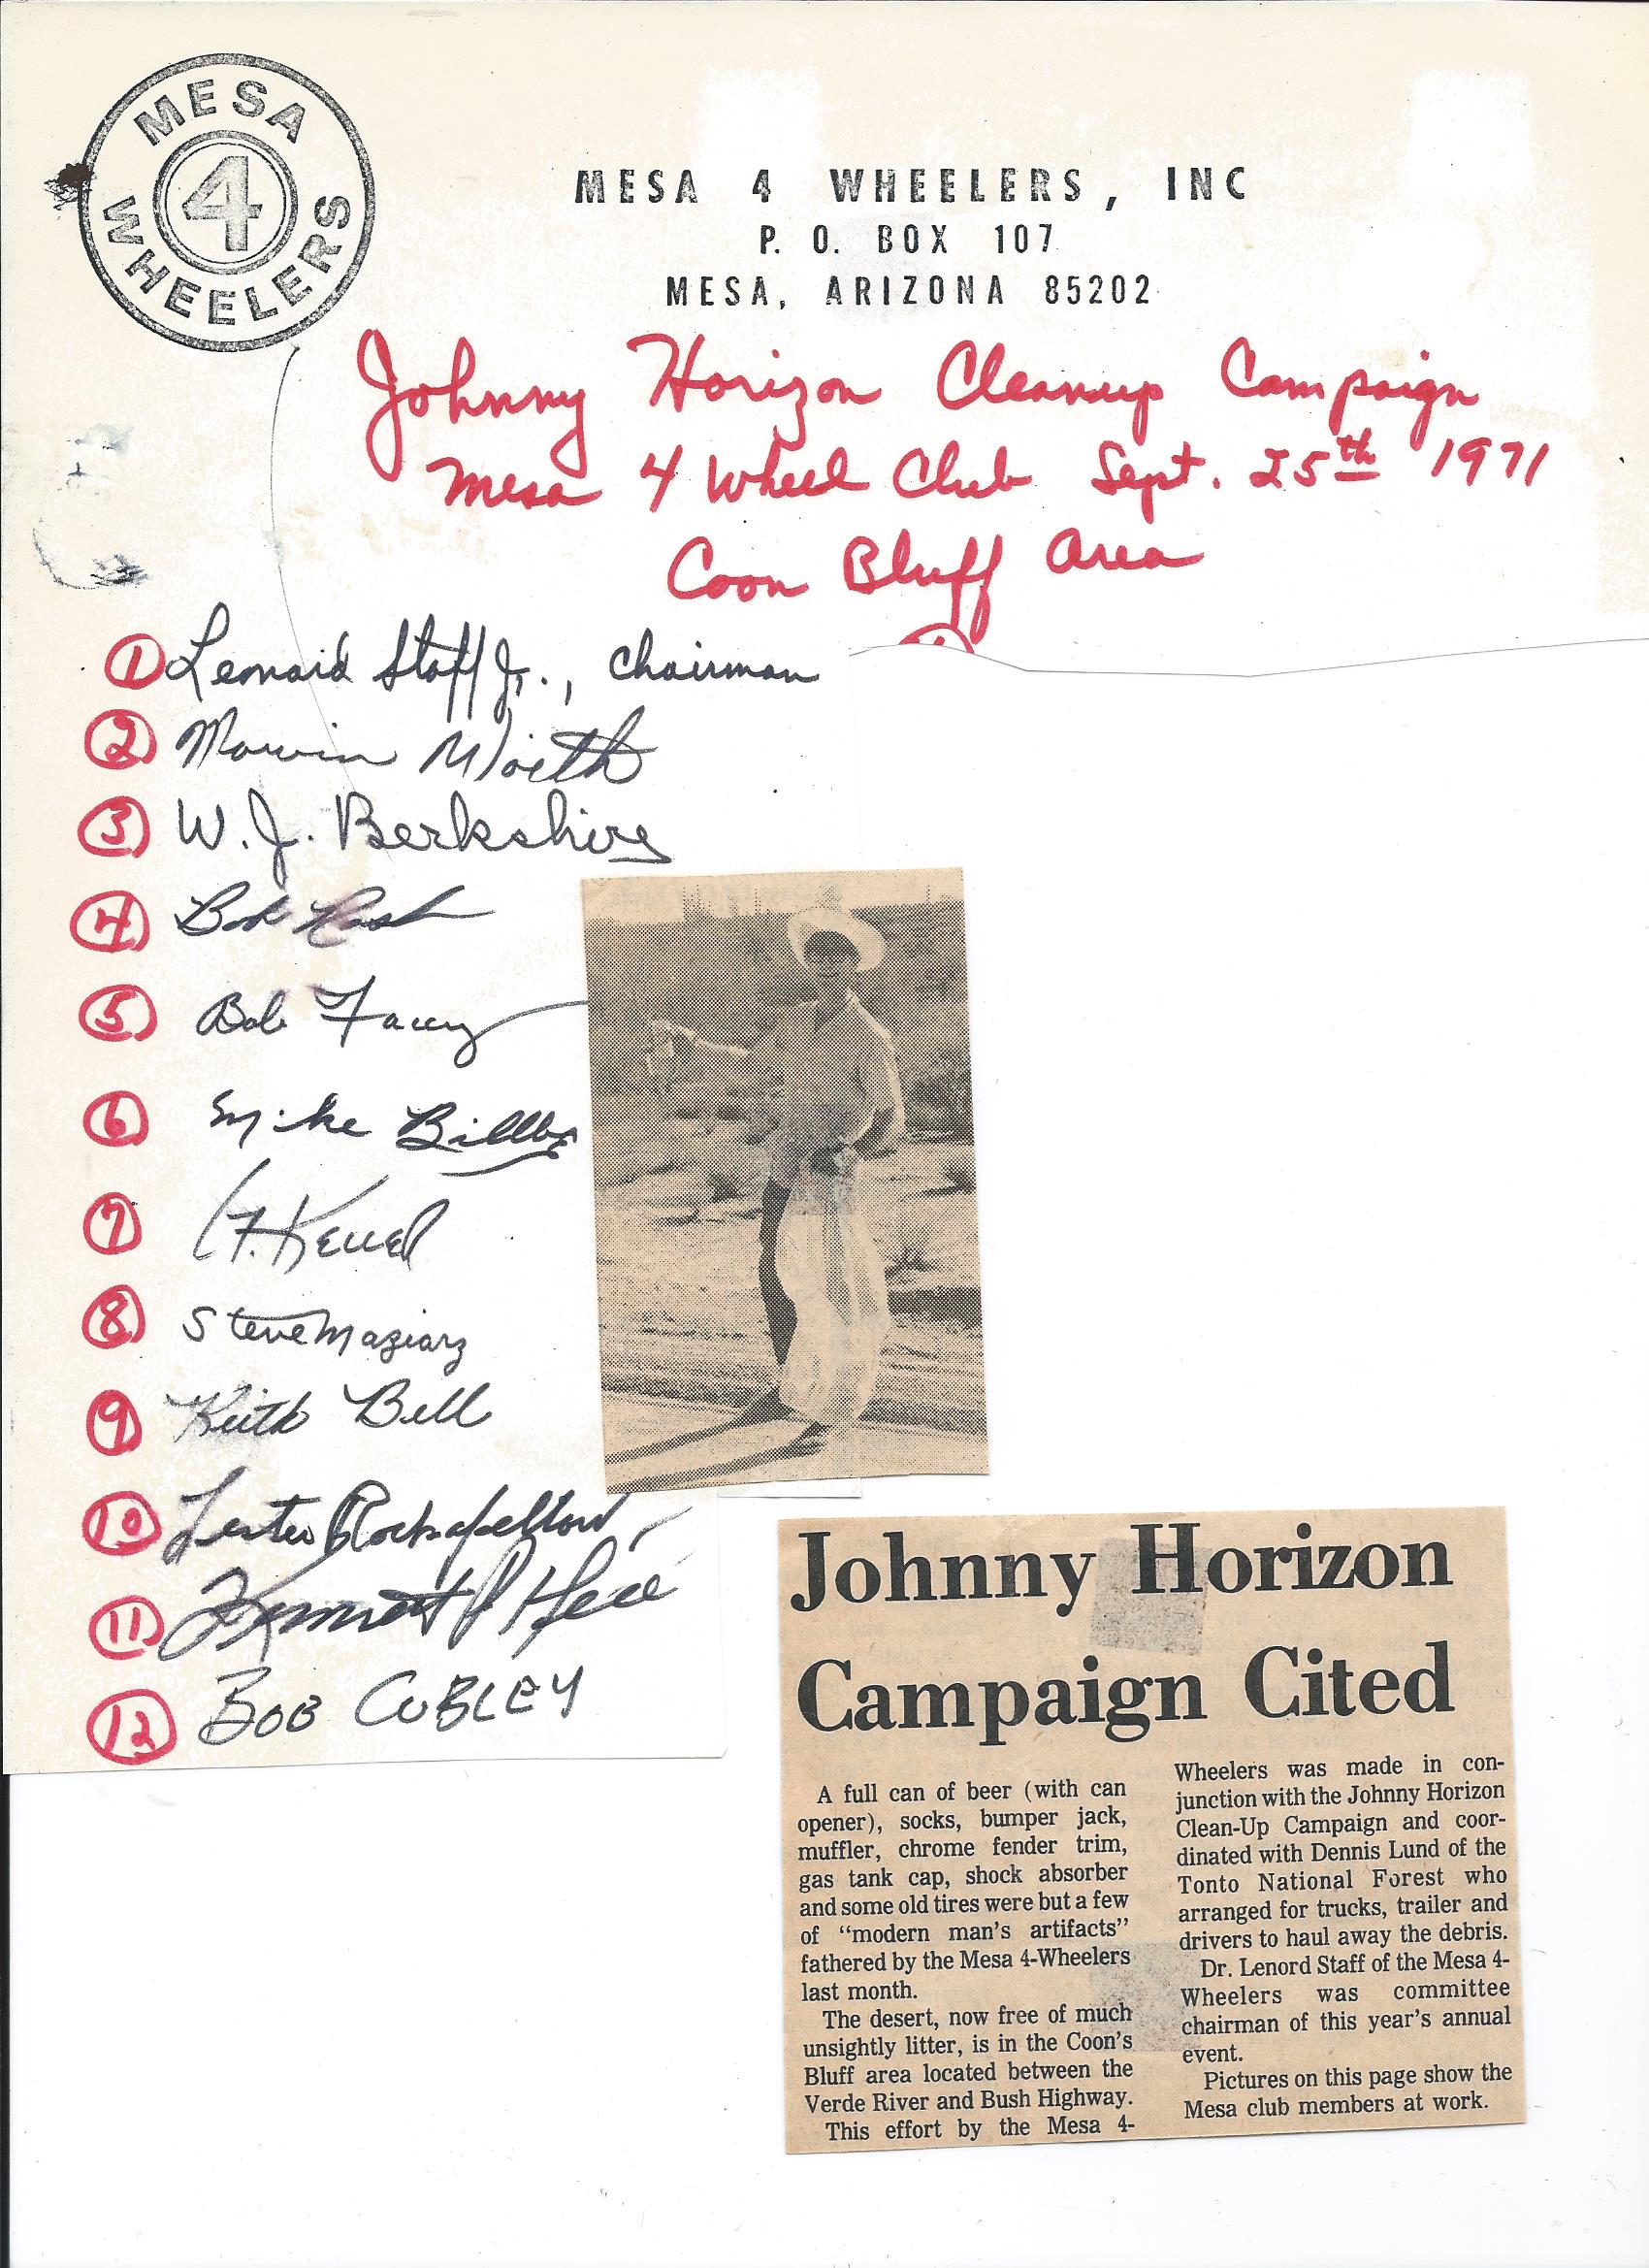 MESA
4
WHEELERS
MESA 4 WHEELERS, INC
P. O. BOX 107
MESA, ARIZONA 85202
Johnny Horizon Cleanup Campaign
Mesa 4 Wheel Club Sept. 25th 1971
Coon Bluff Area
1 Leonard Staff Jr., Chairman
2 Marvin
3 W. J. Berkshire
4 Bob
5 Bob
6 Mike
7
8 Steve Maziarz
9 Keith Bell
10 Lester Rockafellow
11 Kenneth
12 BOB CUBLEY
Johnny Horizon
Campaign Cited
A full can of beer (with can
opener), socks, bumper jack,
muffler, chrome fender trim,
gas tank cap, shock absorber
and some old tires were but a few
of "modern man's artifacts"
fathered by the Mesa 4-Wheelers
last month.
The desert, now free of much
unsightly litter, is in the Coon's
Bluff area located between the
Verde River and Bush Highway.
This effort by the Mesa 4-
Wheelers was made in con-
junction with the Johnny Horizon
Clean-Up Campaign and coor-
dinated with Dennis Lund of the
Tonto National Forest who
arranged for trucks, trailer and
drivers to haul away the debris.
Dr. Lenord Staff of the Mesa 4-
Wheelers was committee
chairman of this year's annual
event.
Pictures on this page show the
Mesa club members at work.